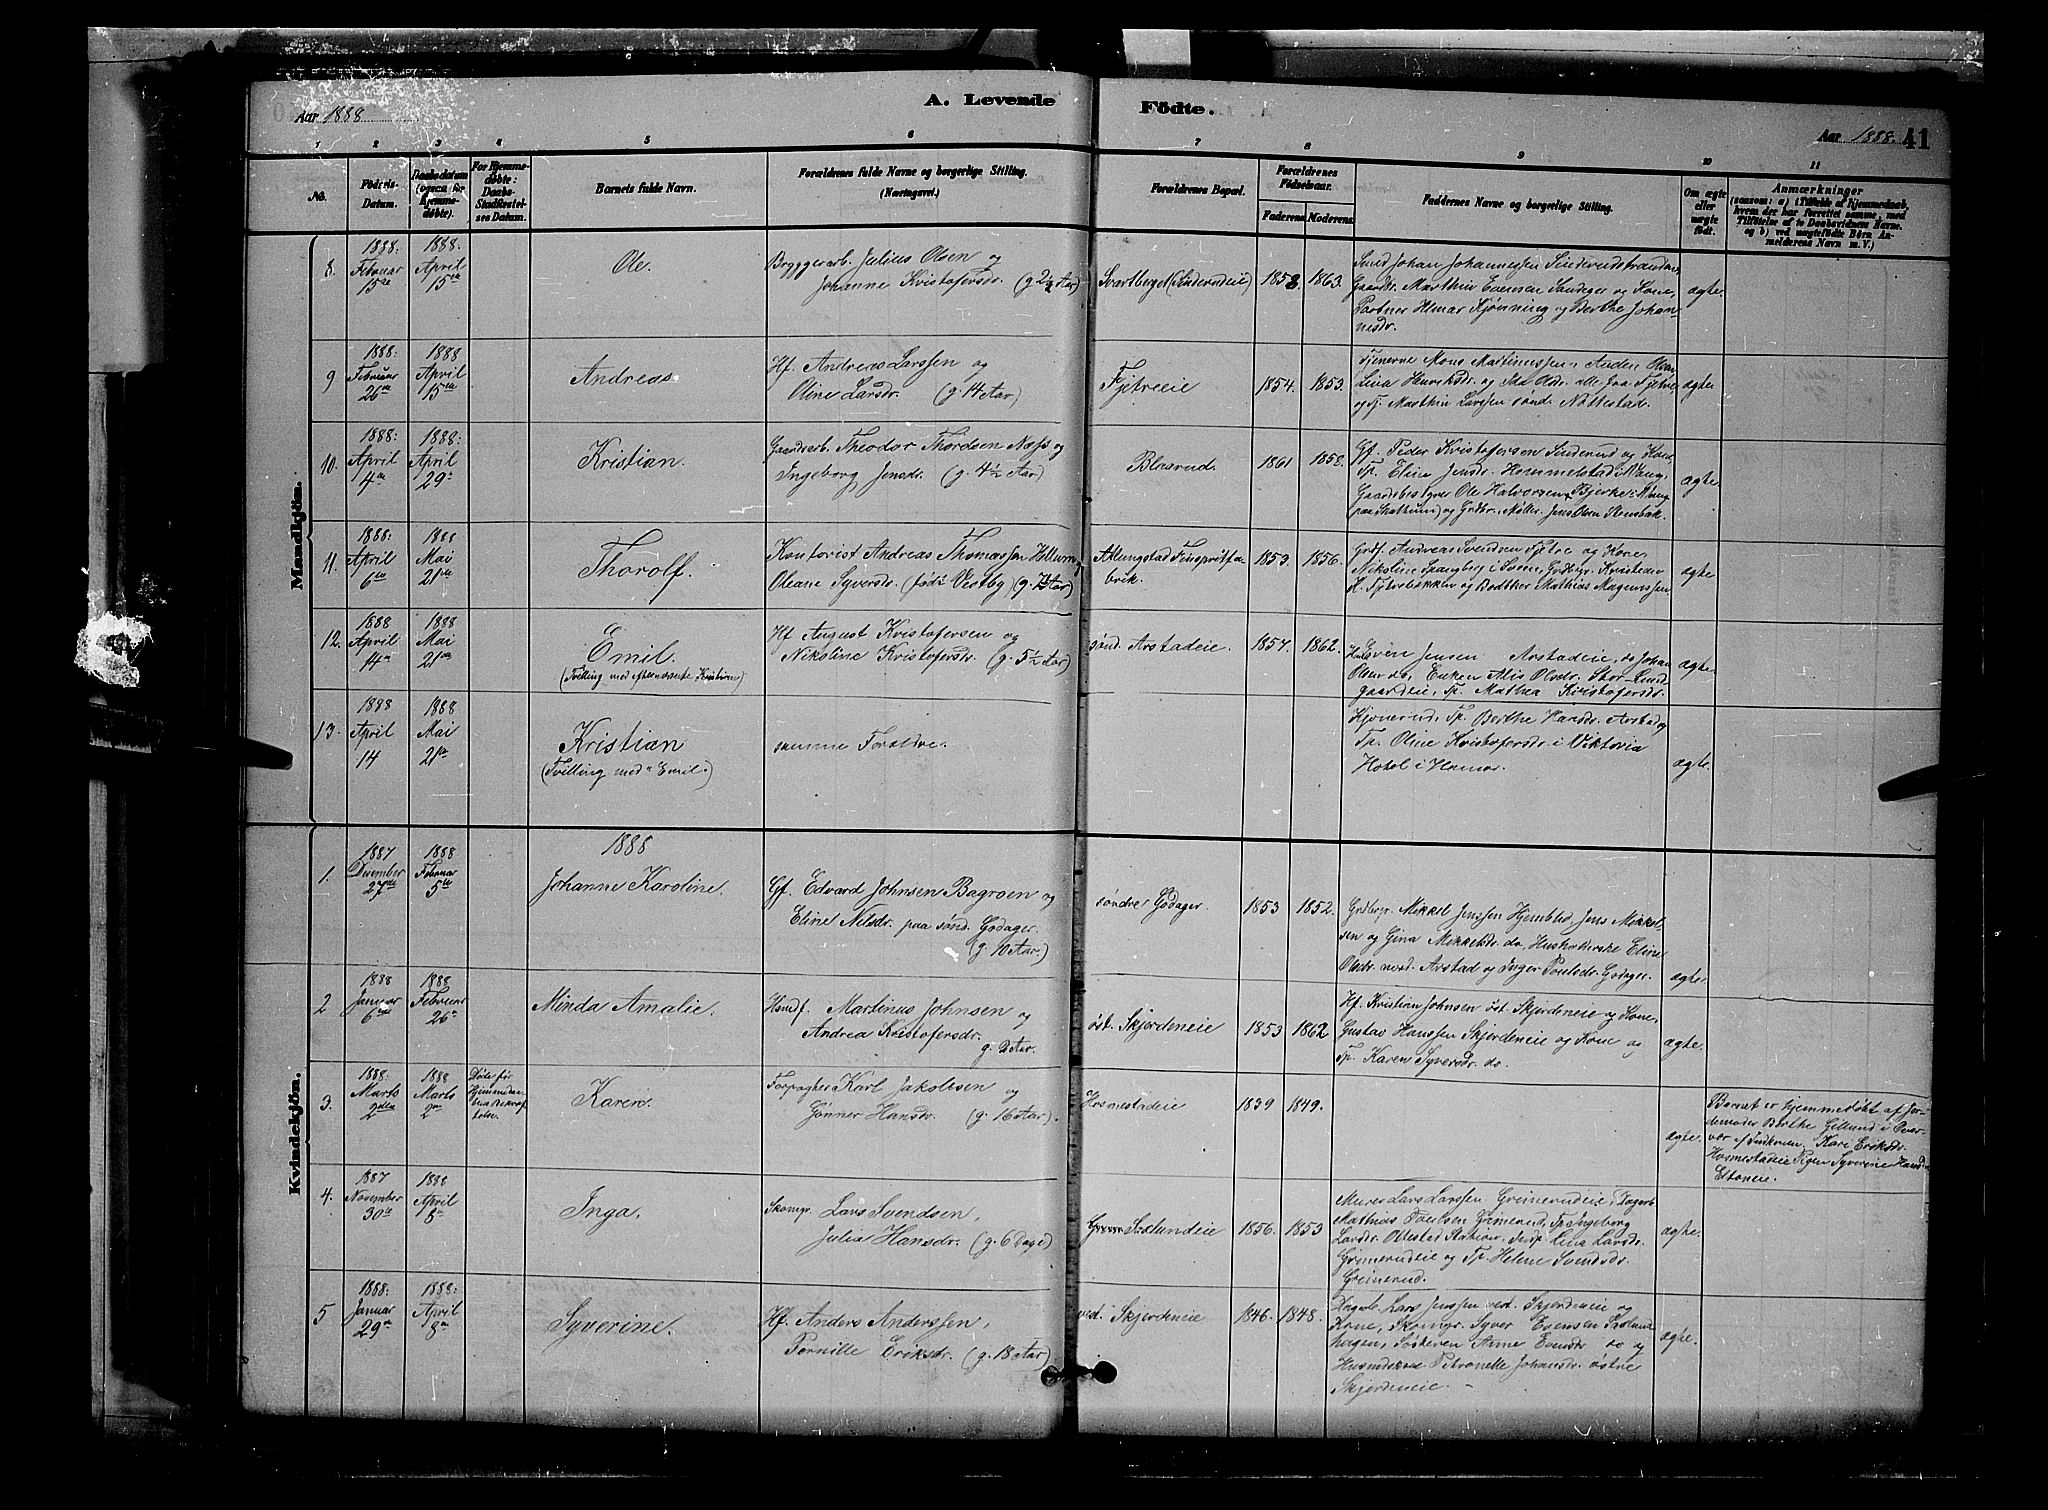 Aar 1888
A. Levende
Födte.
Aar 1888. 41
1 2 3 4 5 6 7 8 9 10 11
No.
Födsels-
Datum.
Daabsdatum
(ogsaa for
hjemme-
döbte).
For Hjemme-
döbte:
Daabs-
Stadfæstel-
ses Datum.
Barnets fulde Navn.
Forældrenes fulde Navne og borgerlige Stilling.
(Næringsvei.)
Forældrenes Bopæl.
Forældrenes
Födselsaar.
Faderens. Moderens.
Faddernes Navne og borgerlige Stilling.
Om ægte
eller
uægte
födt.
Anmærkninger
(saasom: a) i Tilfælde af Hjemmedaab,
hvem der har forrettet samme, med
Tilföielse af to Daabsvidners Navne.
og b) ved uægtefödte Börn An-
melderens Navn m. V.)
Mandkjön.
8.
1888
Februar
15de
1888.
April
15de
Ole.
Bryggerarb. Julius Olsen og
Johanne Kristofersdr. (g. 2½ Aar)
Svartberget (Sinderudeie)
1858 1863.
Smed Johan Johannessen Sinderudstranden,
Gaardbr. Marthin Evensen Sandager og Kone,
Partner Hjmar Kjønning og Berthe Johan-
nesdr.
ægte.
9
1888:
Februar
26de
1888
April
15de
Andreas.
Hf. Andreas Larssen og
Oline Larsdr. (g. 14 Aar)
Fjetreeie
1854. 1853.
Tjenerne Mons Martinussen, Anders Olsen
Lina Henriksdr. og Ida Olsdr. alle fra Fjetre,
og Tp. Marthin Larssen sønd. Nøttestad.
ægte.
10.
1888:
April
4de
1888:
April
29de
Kristian.
Gaardsarb. Theodor Thordsen Næss og
Ingeborg Jensdr. (g. 4½ Aar)
Blæsrud.
1861 1858.
Gf. Peder Kristofersen Sinderud og Kone,
Tp. Eline Jensdr. Hommelstad i Vang,
Gaardsbestyrer Ole Halvorsen Bjerke i Vang
(paa Skattum) og Grdbr. Møller Jens Olsen Stensbak.
ægte
11.
1888:
April
6te
1888
Mai
21de
Thorolf.
Kontorist Andreas Thomassen Hellum og
Oleane Syversdr. (født Vestby) (g. Aar)
Atlungstad Finspritfa-
brik.
1853. 1856.
Grdf. Andreas Svendsen Fjetre og Kone,
Nikoline Spangberg i Svenn, Grdbgr. Kristeder
H. Fjetrebakken og Bødker Mathias Magnussen
ægte
12.
1888
April
14de
1888
Mai
21de
Emil.
(Tvilling med efternævnte Kristian)
Hf. August Kristofersen og
Nikoline Kristofersdr. (g. 5½ Aar)
sønd. Arstadeie.
1857. 1862.
Even Jensen Arstadeie, do Johan
Olsen do, Enken Alis Olsdr. Stor-Lund-
gaardeie, Tp. Mathea Kristofersdr.
ægte
13.
1888
April
14
1888
Mai
21de
Kristian
(Tvilling med "Emil.")
samme Forældre.
Kjonerud, Tp. Berthe Hansdr. Arstad og
Tp. Oline Kristofersdr. i Viktoria
Hotel i Hamar.
ægte.
Kvindekjön.
1888
1.
1887
December
27de
1888
Februar
5te
Johanne Karoline.
Gf. Edvard Johnsen Bagroen og
Eline Nilsdr. paa sønd. Godager.
(g. 10 Aar.)
søndre Godager.
1853 1852.
Grdbrgr. Mikkel Jenssen Hjemstad, Jens Mikkel-
sen og Gina Mikkelsdr. do, Husholderske Eline
Olsdr. nord. Arstad og Inger Poulsdr. Godager.
ægte.
2
1888
Januar
6te
1888
Februar
26de
Minda Amalie.
Hsmdf. Martinus Johnsen og
Andrea Kristofersdr.
g. 2 Aar.
øst. Skjerdeneie
1853 1862
Hf. Kristian Johnsen øst. Skjerdeneie og Kone,
Gustav Hanssen Skjerdeneie og Kone og
Tp. Karen Syversdr. do.
ægte.
3.
1888.
Marts
2den
1888
Marts
2den
Døde før
Hjemmedaa-
bens Bekræf-
telse.
Karen.
Forpagter Karl Jakobsen og
Gønner Hansdr. (g. 16 Aar).
Hosmestadeie
1839 1849.
ægte.
Barnet er hjemmedøbt af Jor-
demoder Berthe Gillund i Over-
vær af Inderøen, Kari Eriksdr.
Hosmestadeie Pigen Syverine Hansdr.
Eltoneie.
4.
1887
November
30te
1888
April
8de
Inga.
Skomgr. Lars Svendsen,
Julia Hansdr. (g. 6 Dage)
Sodlundeie
1856. 1853
Murer Lars Larssen Grimerudeie, Dagarb.
Mathias Poulsen Grimerud, Tp. Ingeborg
Larsdr. Ottestad Station, Insp. Lina Larsdr.
Grimerudeie og Tp. Helene Svendsdr.
Grimerud.
ægte.
5
1888.
Januar
29de
1888:
April
8de
Syverine.
Hf. Anders Anderssen,
Pernille Eriksdr. (g. 18 Aar)
vest. Skjerdeneie
1846. 1848.
Dagarb. Lars Jenssen vest. Skjerdeneie og
Kone, Skomgr. Syver Evensen Sodlund-
hagen, Søsteren Anne Evensdr. do og
Husmdskone Petronelle Johansdr. østre
Skjerdeneie.
ægte.